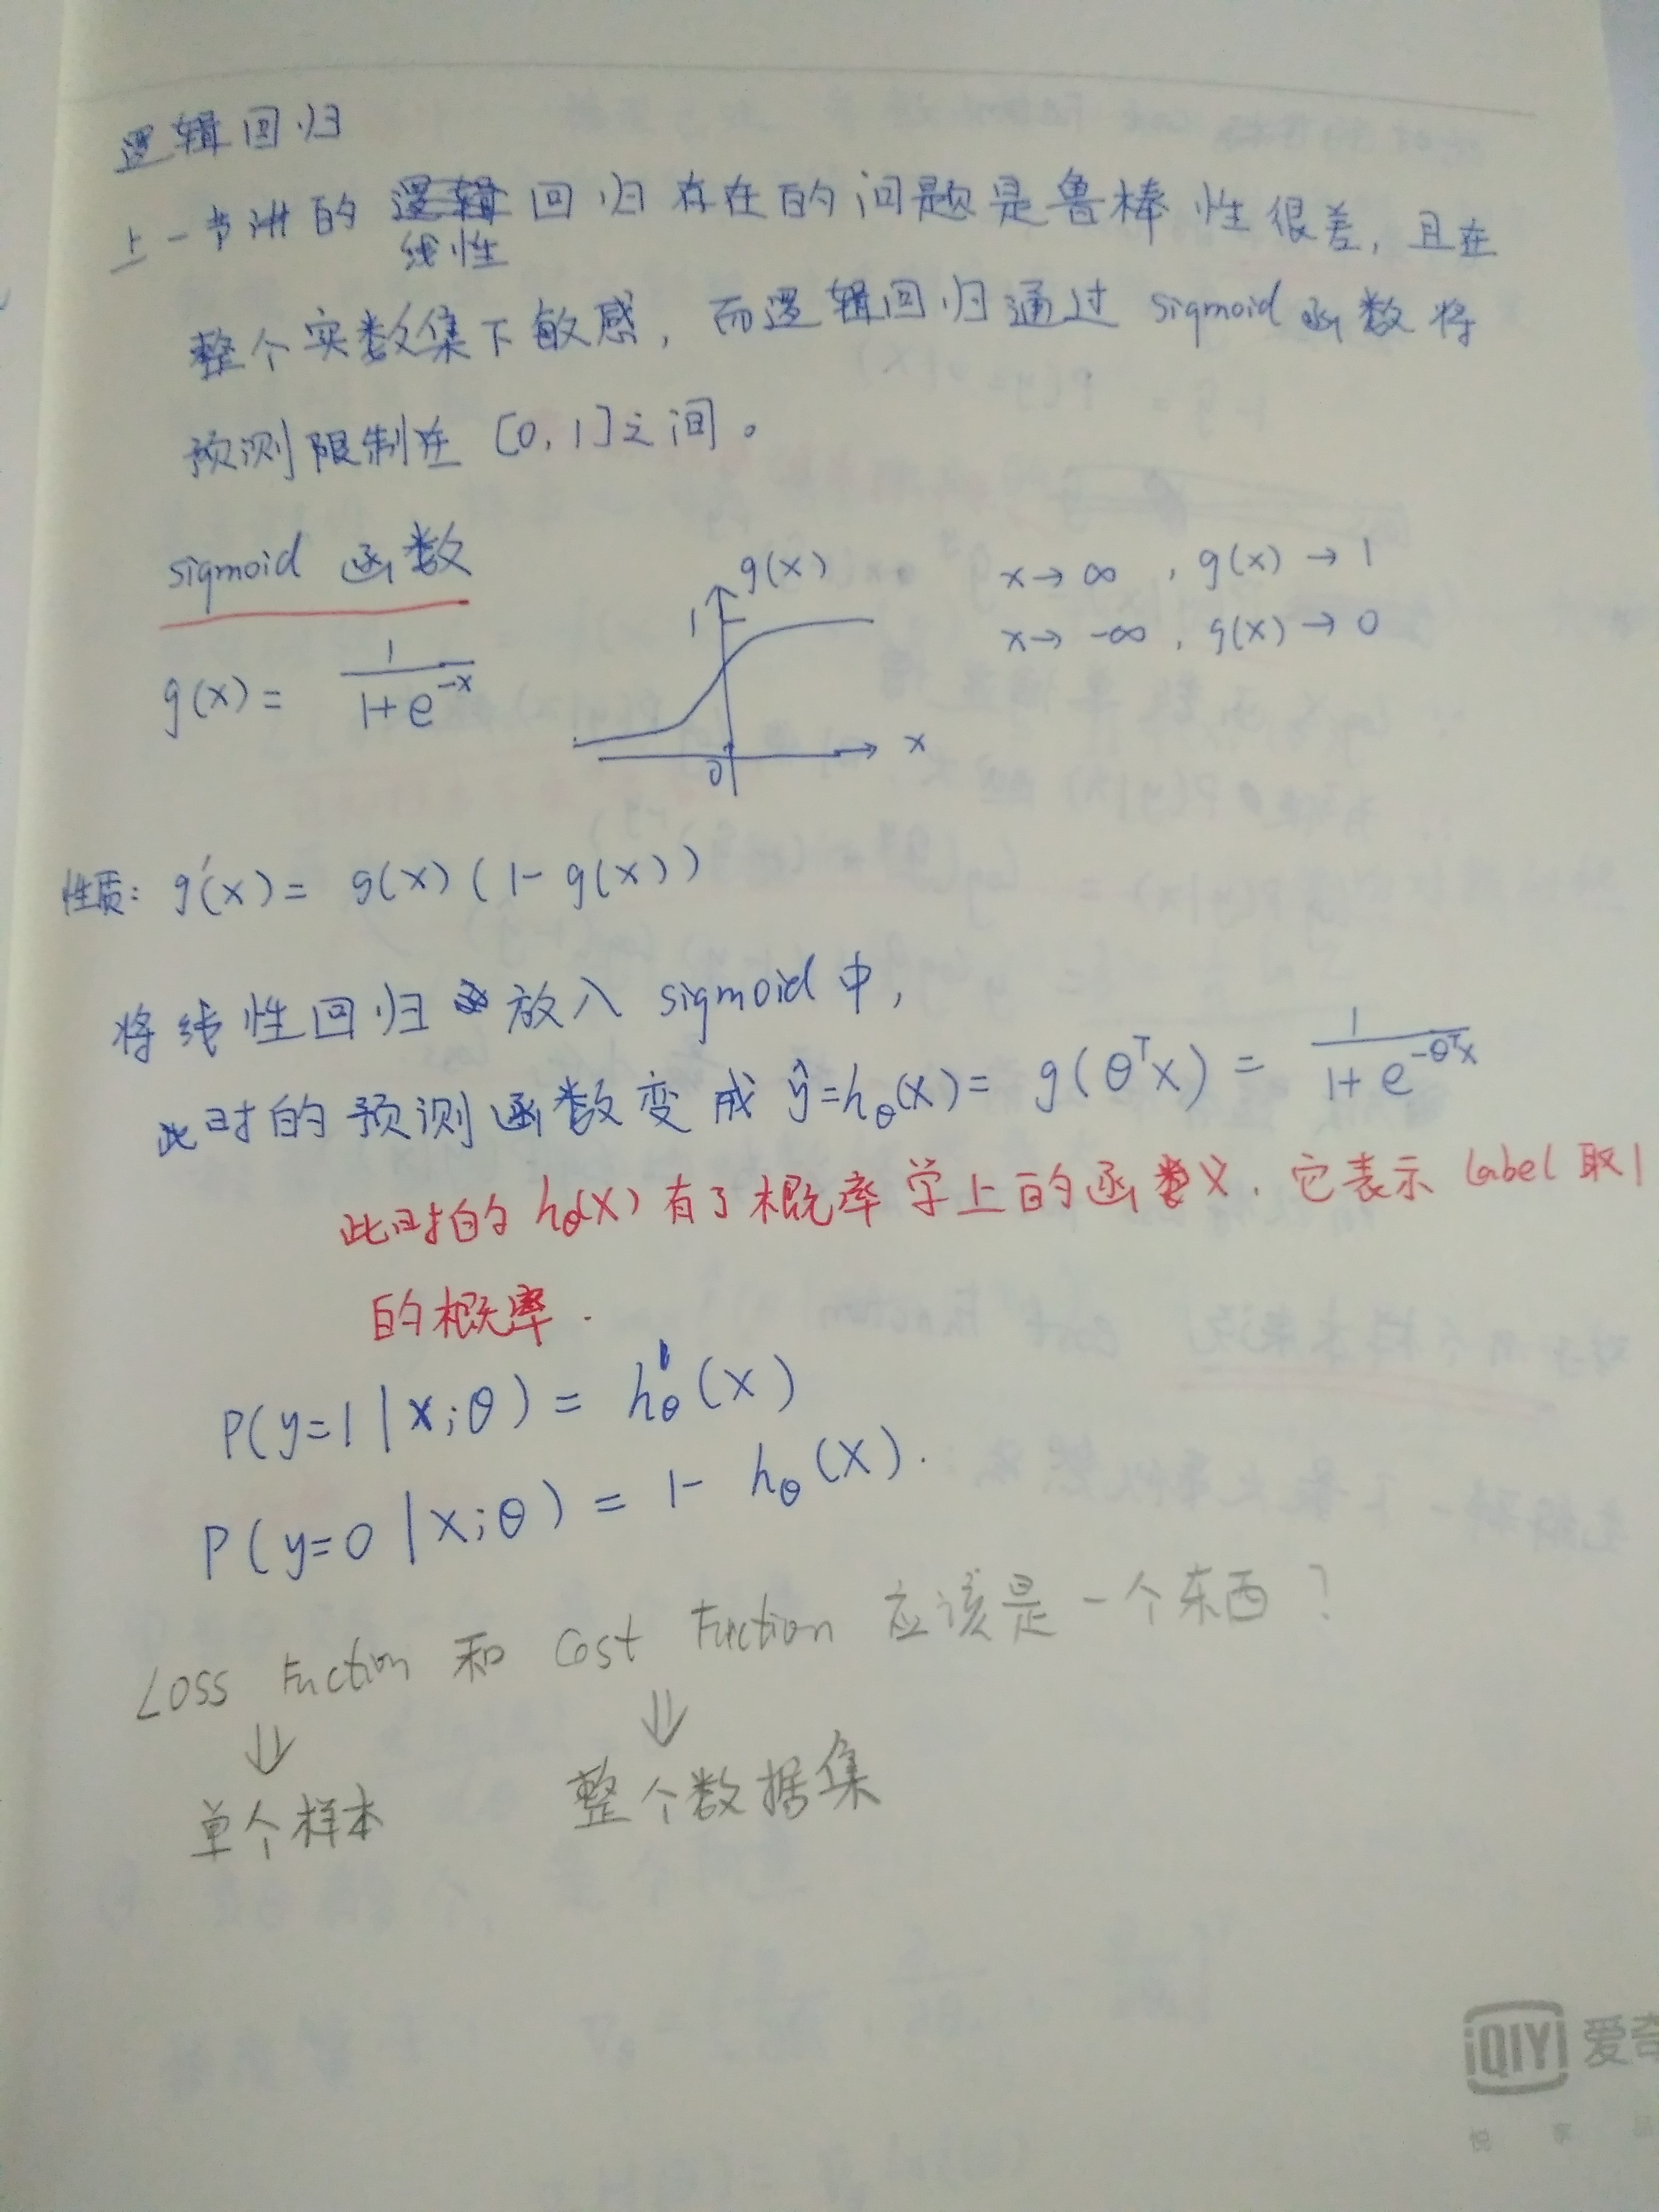 逻辑回归
上一节讲的 线性 回归存在的问题是鲁棒性很差,且在
整个实数集下敏感,而逻辑回归通过 sigmoid 函数将
预测限制在 [0,1]之间。
sigmoid 函数
g(x) = 1/(1+e^{-x})
g(x)
1
0
x
x→ ∞ , g(x) → 1
x→ -∞ , g(x) → 0
性质: g'(x) = g(x) (1- g(x))
将线性回归放入 sigmoid 中,
此时的预测函数变成 ŷ=h_θ(x) = g(θ^T x) = 1/(1+e^{-θ^T x})
此时的 h_θ(x) 有了概率学上的函数义. 它表示 label 取1
的概率.
P(y=1 | x;θ) = h_θ(x)
P(y=0 | x;θ) = 1- h_θ(x).
Loss Fuction 和 Cost Fuction 应该是一个东西?
⇓ ⇓
单个样本 整个数据集
iQIYI 爱奇
悦 享 品